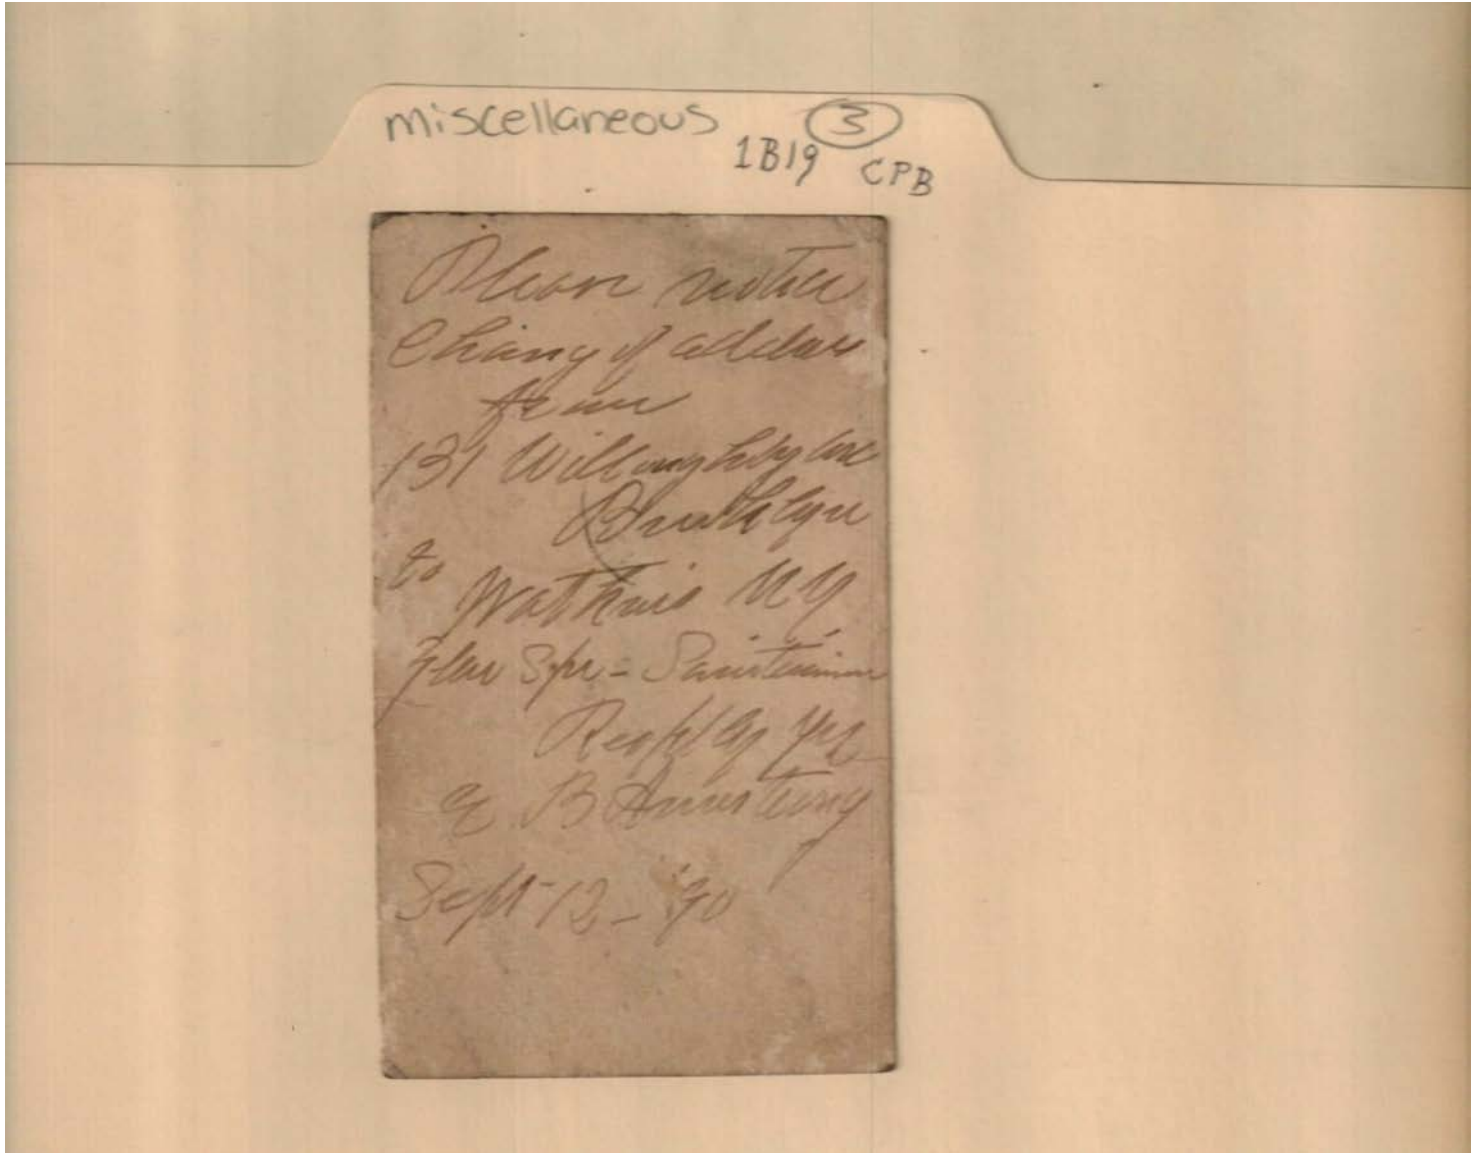 miscellaneous (3)
1B19 CPB
Please notice
Change of address
from
131 Willoughby ave
Brooklyn
to Watkins NY
Glen Spr = Sanitarium
Respy Yrs
E B Armstrong
Sept 12 - '90